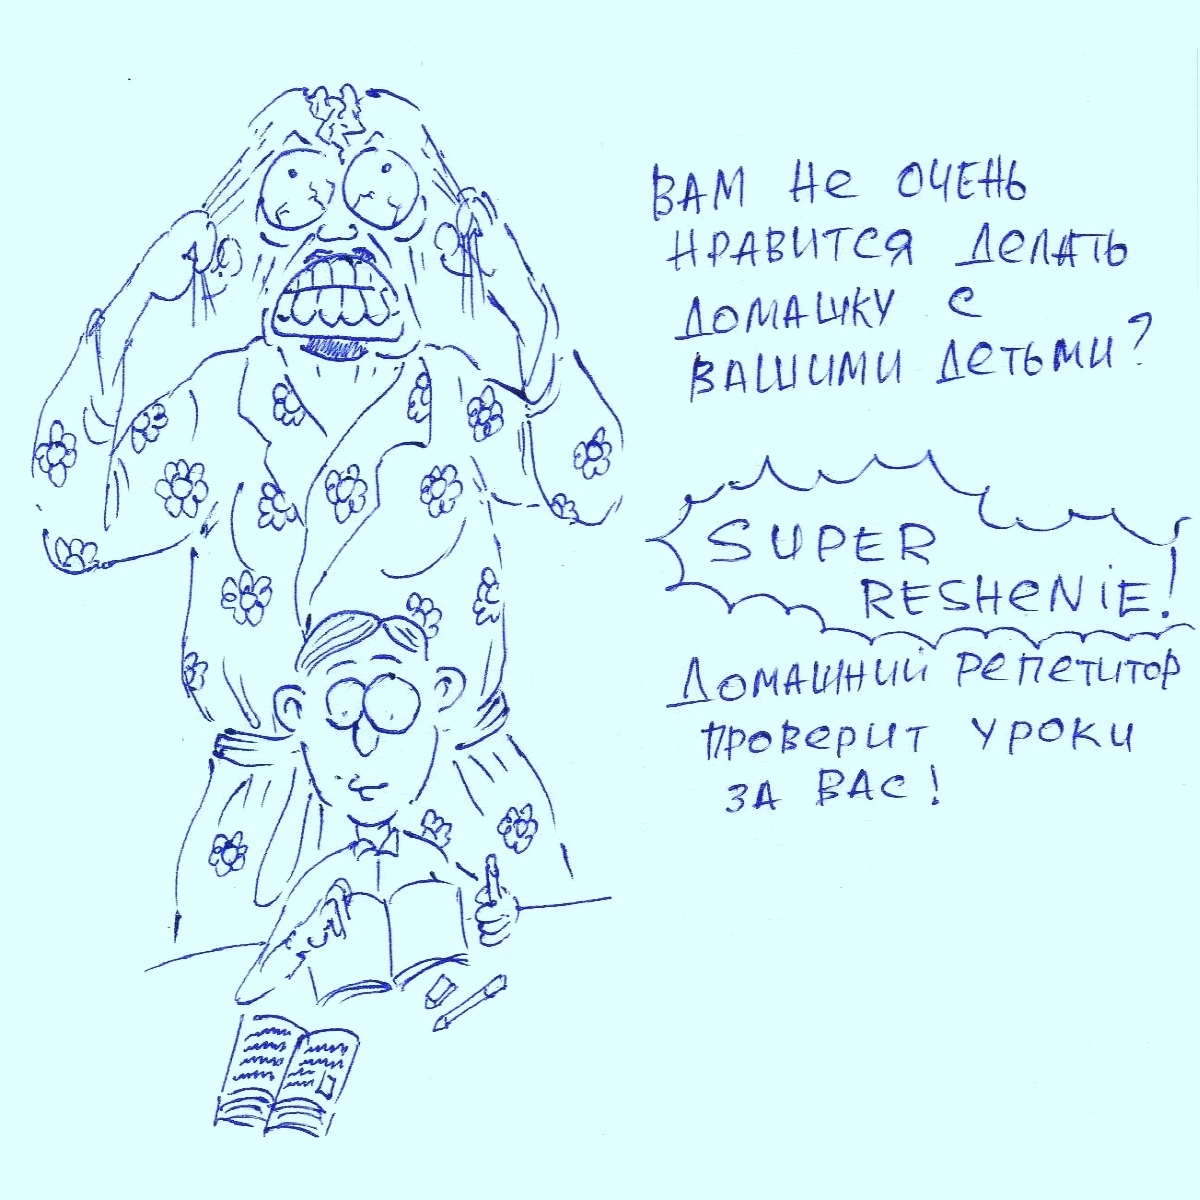 ВАМ НЕ ОЧЕНЬ
НРАВИТСЯ ДЕЛАТЬ
ДОМАШКУ С
ВАШИМИ ДЕТЬМИ?
SUPER
RESHENIE!
ДОМАШНИЙ РЕПЕТИТОР
ПРОВЕРИТ УРОКИ
ЗА ВАС!